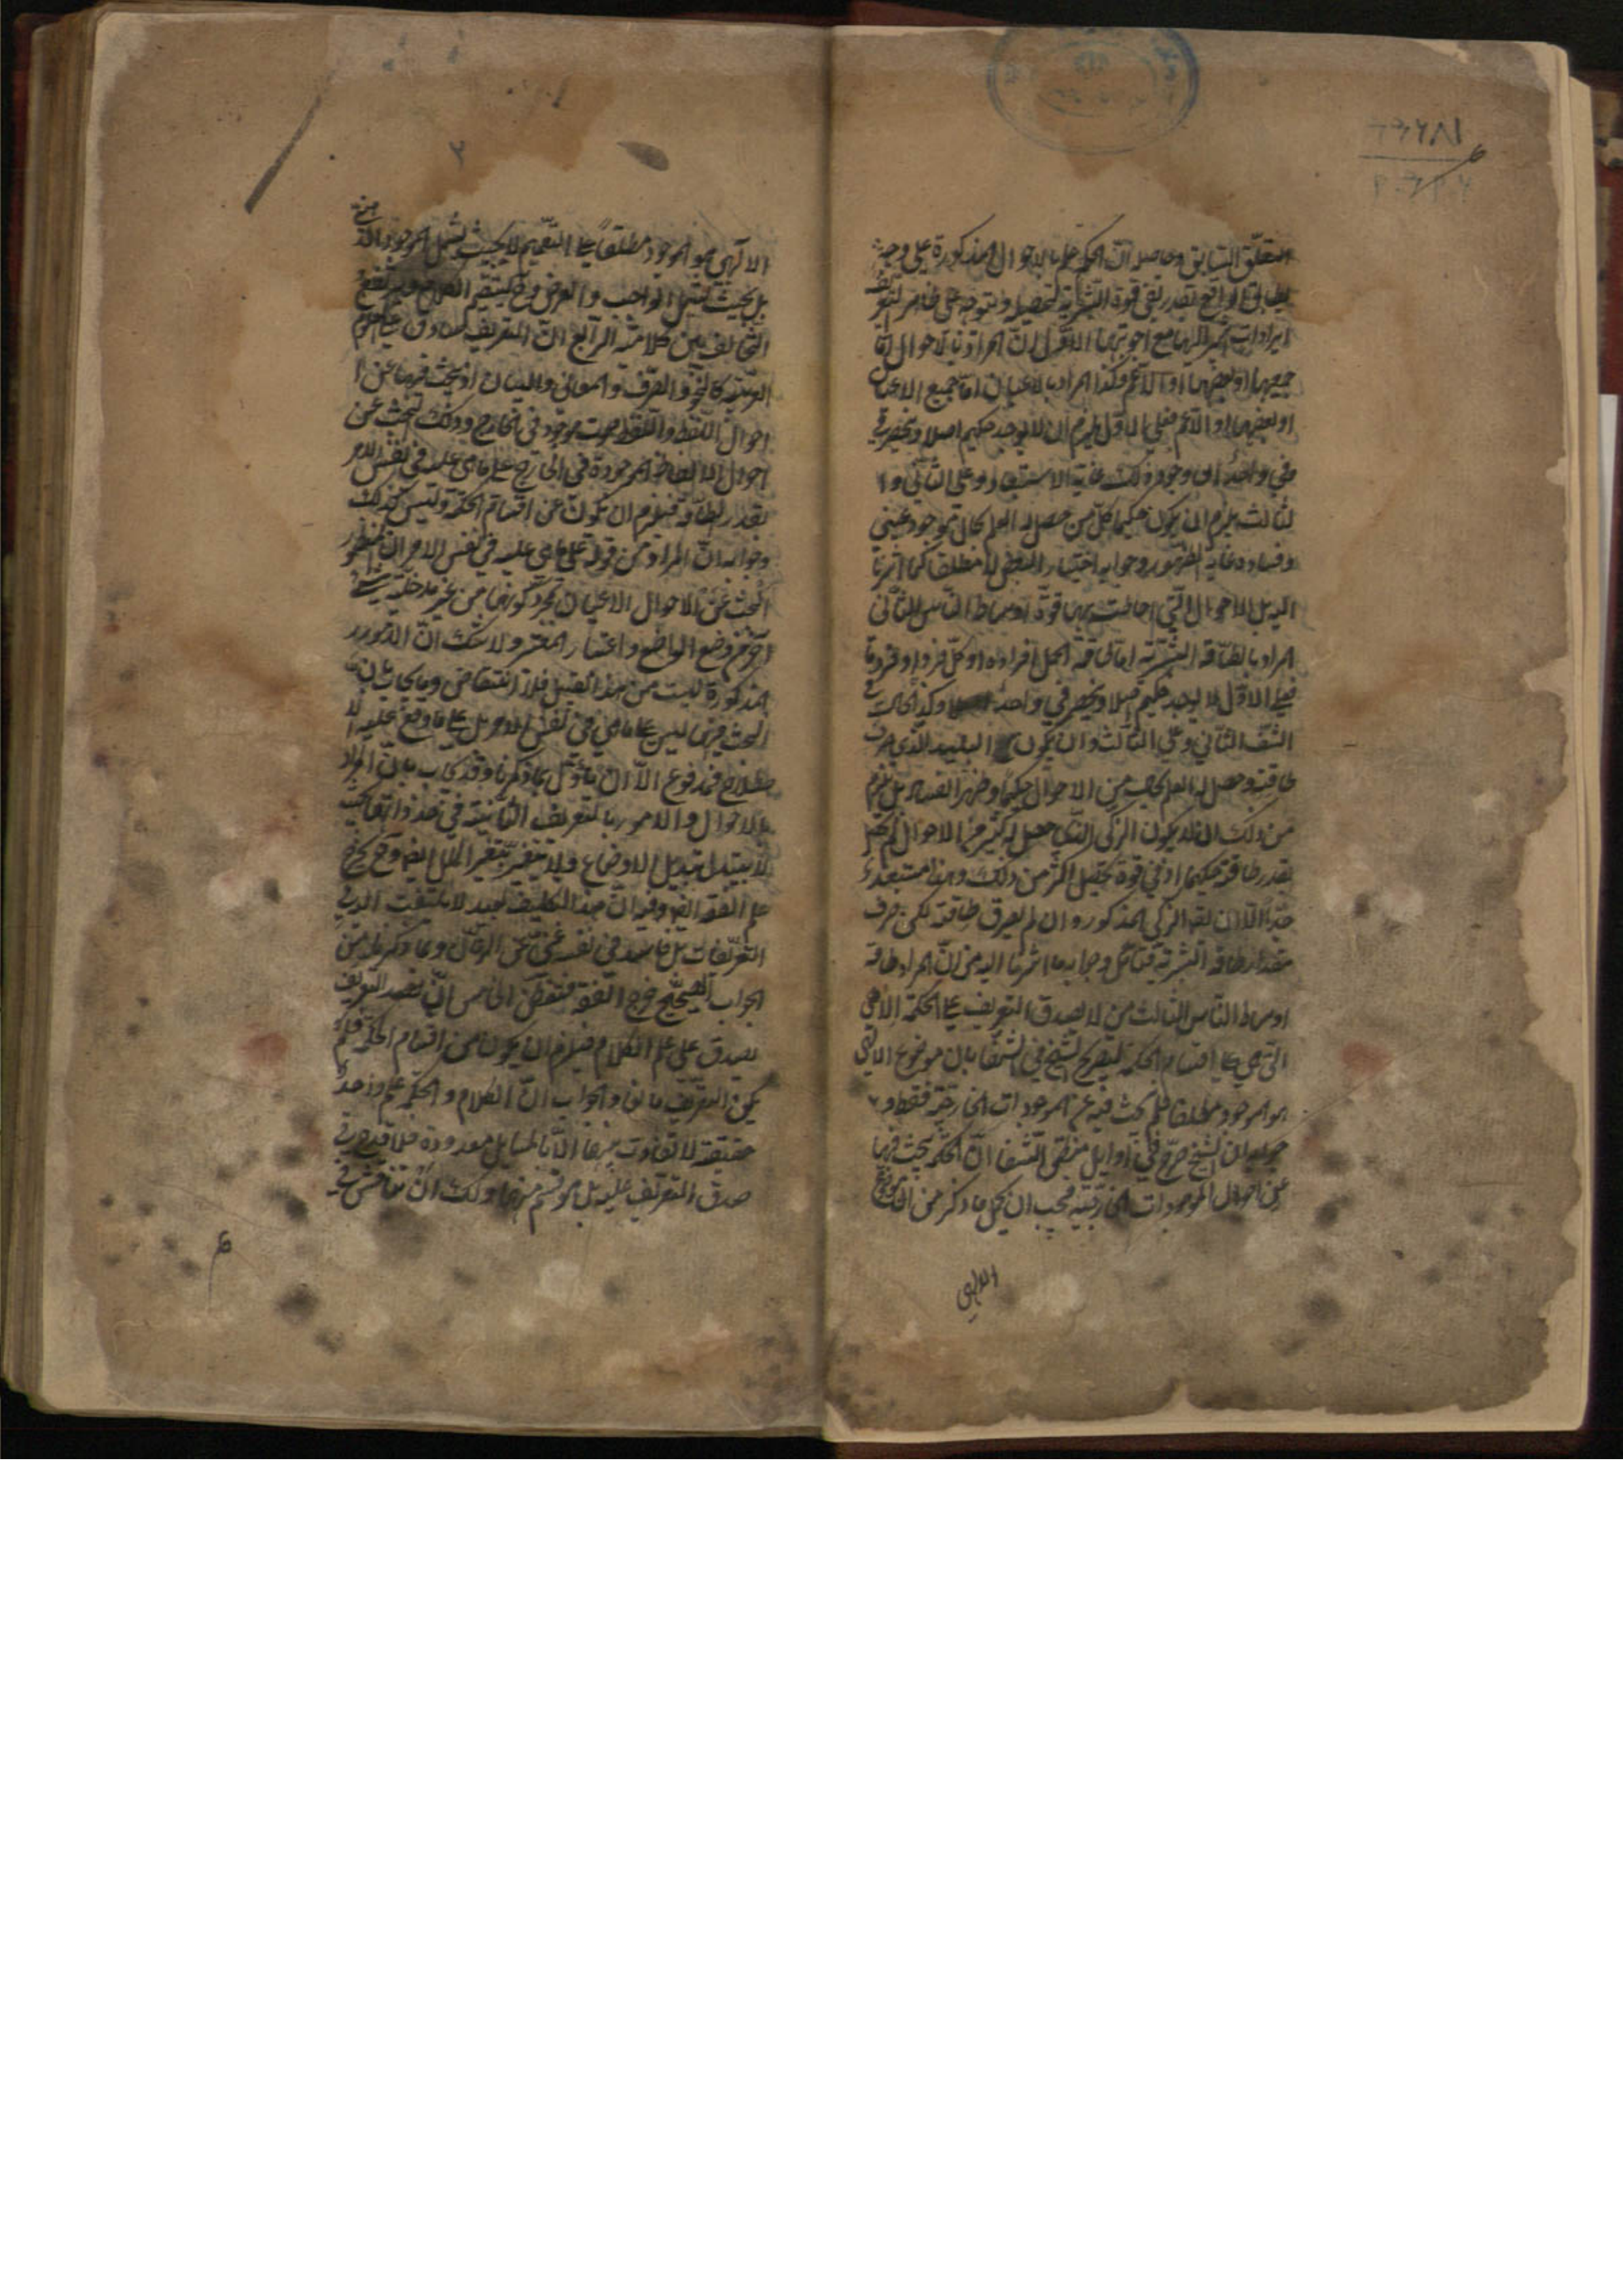 المتعلق السابق وحاصله ان الحكمة علم بالاحوال المذكورة على وجه
يطابق الواقع بقدر تفي قوة البشرية لتحصيله ويتوجه على ظاهر التعريف
ايرادات مع اجوبتها الاول ان المراد بالاحوال اما
جميعها او بعضها او الاعم وكذا المراد بالاعيان اما جميع الاعيان
او بعضها او الاعم فعلى الاول يلزم ان لا يوجد حكيم اصلا وينحصر في
وجود ذلك غاية الاستبعاد وعلى الثاني وا
لثالث يلزم ان يكون حكيما كل من حصل له العلم بحال موجود عيني
وفساده غاية الظهور وجوابه اختيار البعض لا مطلقا كما اشرنا
اليه بل الاحوال التي احاطت بها قوة اوساط الناس الثاني
المراد بالطاقة البشرية اما طاقة كمل افراده او كل فرد او فرد ما
فعلى الاول لا يوجد حكيم اصلا وينحصر في واحد وكذا الحال في
الشق الثاني وعلى الثالث وان يكون البليد الذي صرف
طاقته وحصل له العلم من الاحوال حكيما وظهر الفساد بل يلزم
من ذلك ان لا يكون الزكي الذي حصل له كثير من الاحوال لم يحصل
بقدر طاقته حكيما اذ في قوته تحصيل اكثر من ذلك وهذا مستبعد
جدا الا ان يقال الزكي المذكور وان لم يصرف طاقته لكن صرف
مقدار طاقة البشرية فتأمل وجوابه ما اشرنا اليه من ان المراد طاقة
اوساط الناس الثالث من لا يصدق التعريف على الحكمة الالهي
التي هي اقسام الحكمة لتصريح الشيخ في الشفا بان موضوع الالهي
هو الموجود مطلقا فلم يبحث فيه عن الموجودات الخارجية فقط و
جوابه ان الشيخ صرح في اوايل منطق الشفا ان الحكمة يبحث فيها
عن احوال الموجودات الخارجية فيجب ان يحمل ما ذكر من ان موضوع
الالهي
٢
الالهي هو الموجود مطلقا على التعميم لا بحيث يشمل الموجود الذهني
بل بحيث يشمل الواجب والعرض وح يستقيم الكلام ويرتفع
التخالف بين كلاميه الرابع ان التعريف صادق على العلوم
العربية كالنحو والصرف والمعاني والبيان اذ يبحث فيها عن ا
حوال اللفظ واللفظ صوت موجود في الخارج وكذلك تبحث عن
احوال الالفاظ الموجودة في الخارج على ما هي عليه في نفس الامر
بقدر الطاقة فيلزم ان يكون من اقسام الحكمة وليس كذلك
وجوابه ان المراد من قوله على ما هي عليه في نفس الامر ان
البحث عن الاحوال الاعيان بمجرد كونها من غير مدخلية شيء
آخر من وضع الواضع واعتبار المعتبر ولا شك ان الامور
المذكورة ليست من هذا القبيل فلا انتقاض وما يجاب بان
البحث فيها ليس على ما هي في نفس الامر بل على ما وقع عليه الا
صطلاح فمدفوع الا ان يأول بما ذكرنا وقد يجاب بان المراد
بالاحوال والامور بالتعريف الثابتة في حد ذاتها بحيث
لا يتبدل بتبديل الاوضاع ولا يتغير بتغير الملل ايضا وح يخرج
علم الفقه ايضا وفيه ان هذا التكليف بعيد لا يلتفت اليه في
التعريفات بل فاسد في نفسه غني عن البيان وما ذكرنا من
الجواب الصحيح خرج الفقه فتفطن الخامس ان هذا التعريف
يصدق على علم الكلام فيلزم ان يكون من اقسام الحكمة فلم
يكن التعريف مانعا والجواب ان الكلام والحكمة علم واحد
حقيقة لا تفاوت بينهما الا بالمسايل معدودة فلا قدح في
صدق التعريف عليه بل هو قسم منها ولك ان تناقش في